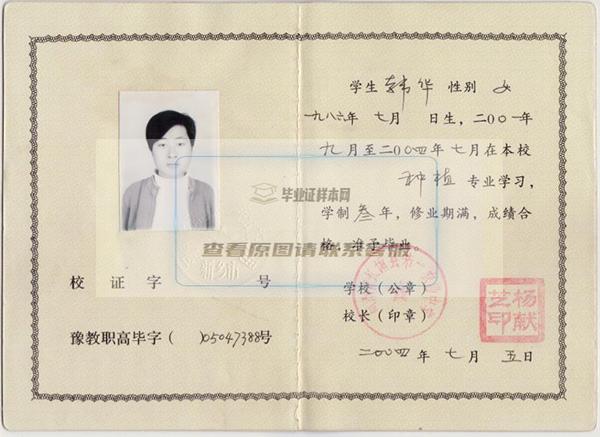 学生 韩华 性别 女
一九八六年 七月 日生，二〇〇一年
九月至二〇〇四年七月在本校
种植 专业学习，
学制 叁 年，修业期满，成绩合
格，准予毕业。
学校（公章）
校长（印章）
杨献
芝印
二〇〇四年 七 月 五日
校 证 字 号
豫教职高毕字（ ）05047388号
毕业证样本网
查看原图请联系客服